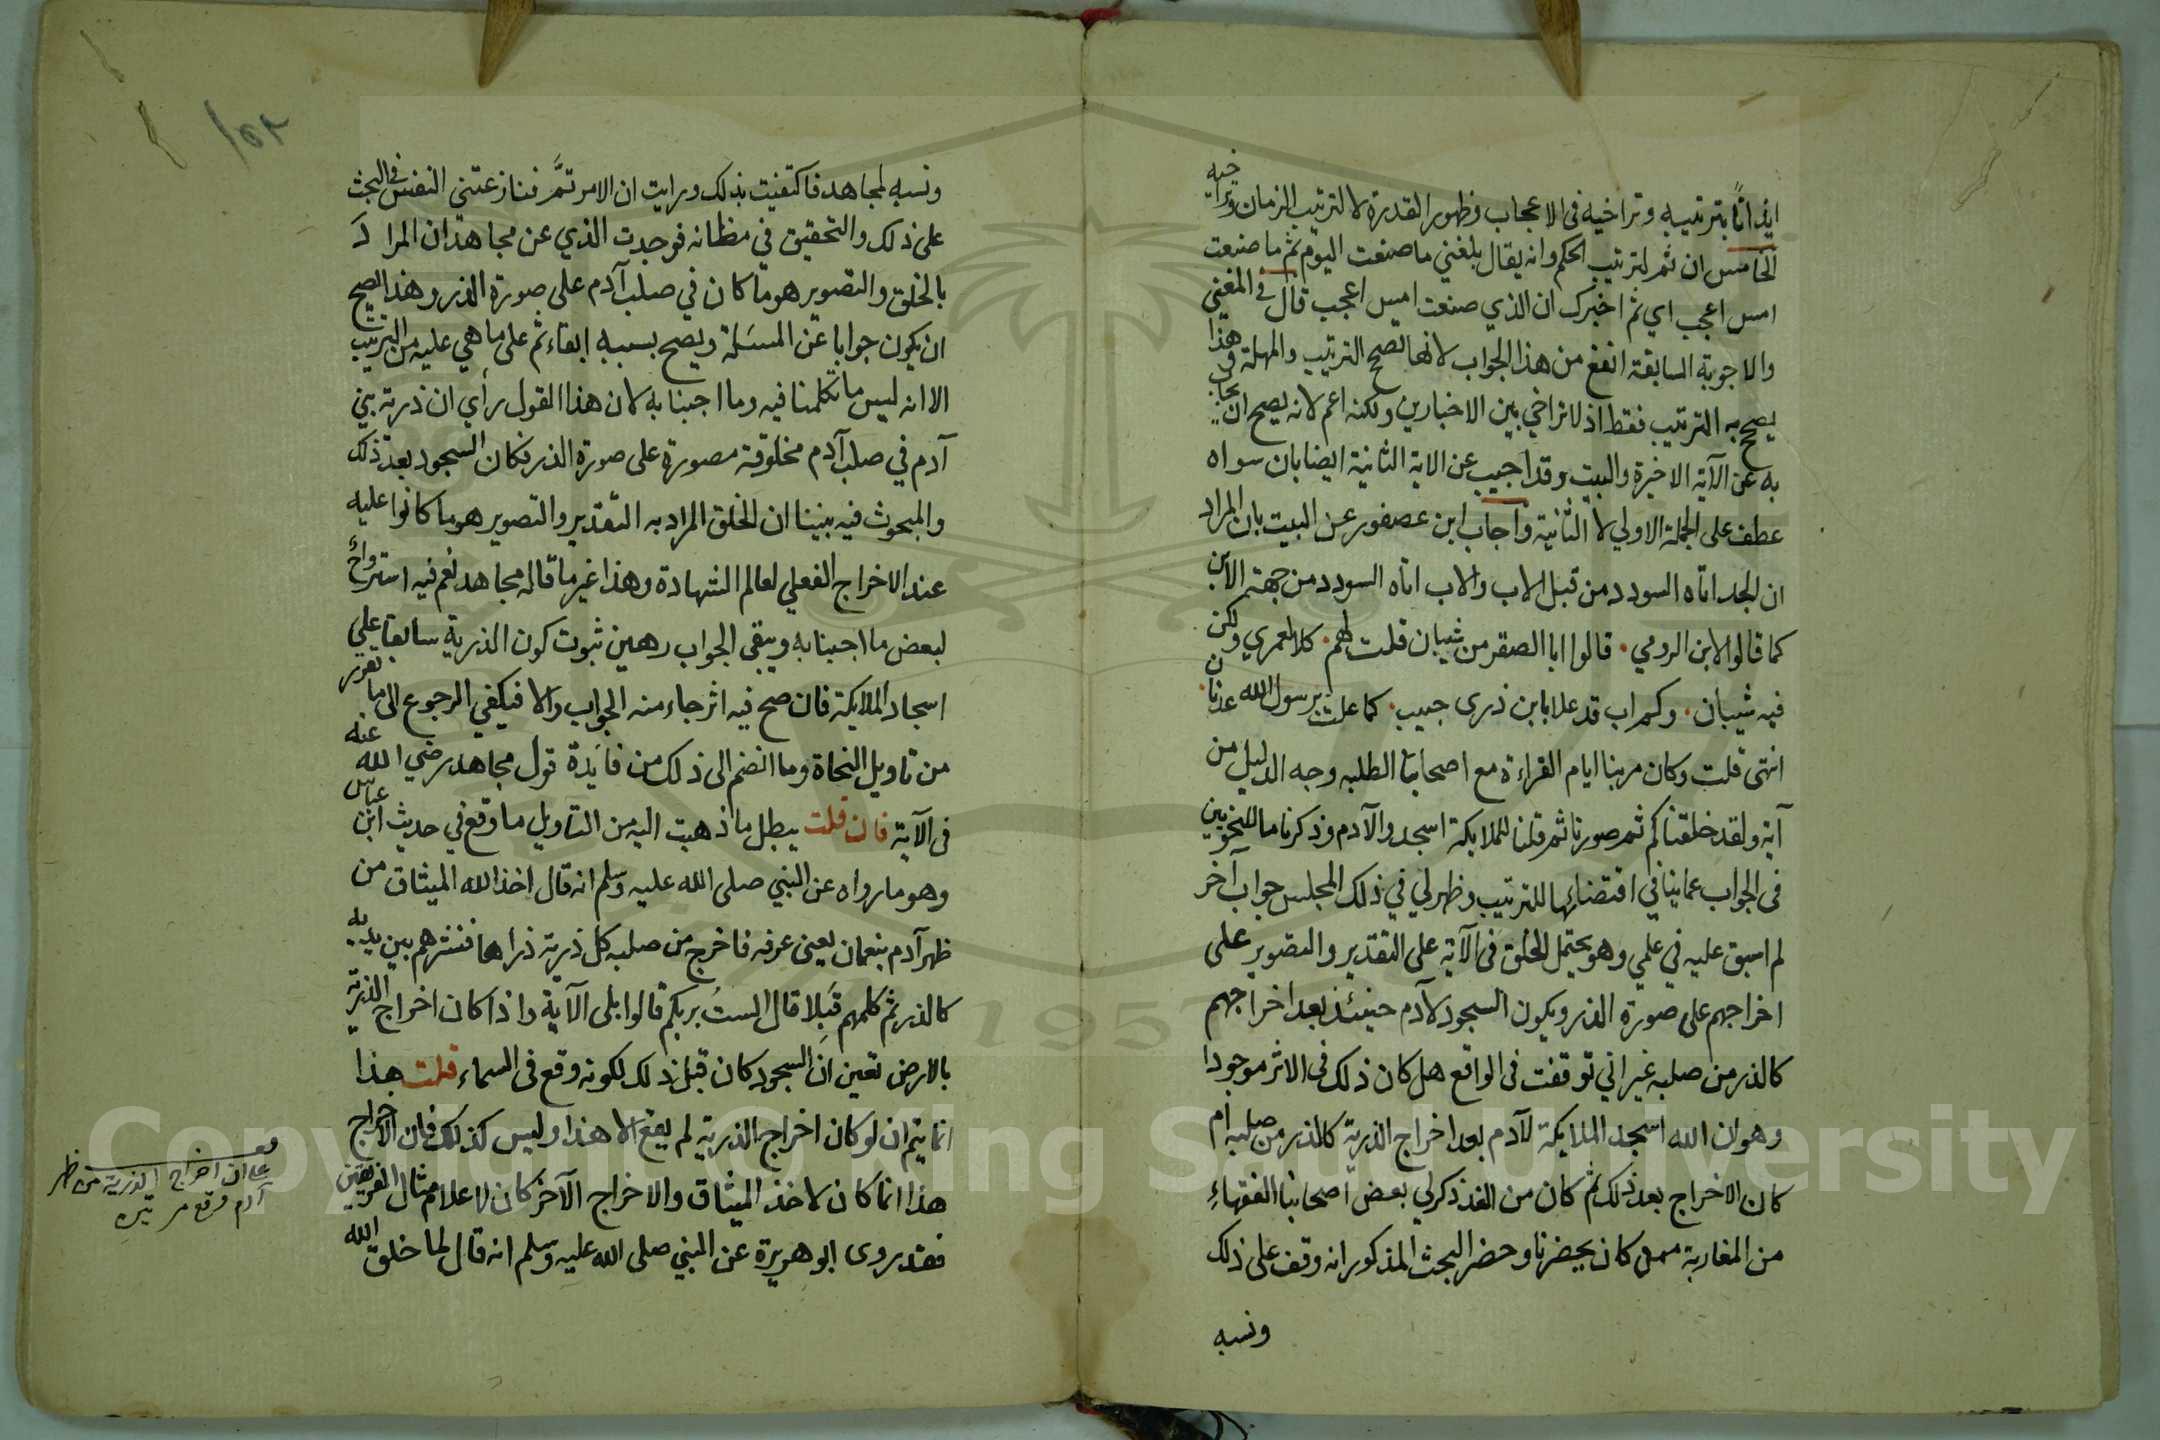 ايذانًا بترتيبه وتراخيه فى الاعجاب وظهور القدرة لا لترتيب الزمان وتراخيه
الخامس ان ثم لترتيب الحكم وانه يقال بلغني ما صنعت اليوم ثم ما صنعت
امس اعجب اي ثم اخبرك ان الذي صنعت امس اعجب قال في المغني
والاجوبة السابقة انفع من هذا الجواب لانها تصحح الترتيب والمهلة وهذا
يصحح به الترتيب فقط اذ لا تراخي بين الاخبارين ولكنه اعم لانه يصح ان يجاب
به عن الآية الاخيرة والبيت وقد اجيب عن الاية الثانية ايضا بان سواه
عطف على الجملة الاولي لا الثانية واجاب ابن عصفور عن البيت بان المراد
ان الجد اتاه السودد من قبل الاب والاب اتاه السودد من جهة الابن
كما قالوا لابن الرومي . قالوا ابا الصقر من شيبان قلت لهم . كلا لعمري ولكن
فيه شيبان . وكم اب قد علا بابن ذرى حسب . كما علت برسول الله عدنان .
انتهى قلت وكان مر بنا ايام القراءة مع اصحابنا الطلبه وجه الدليل من
آية ولقد خلقناكم ثم صورنا ثم قلنا للملايكة اسجدوا لآدم وذكرنا ما للنحويين
فى الجواب عما ينافي اقتضائها للترتيب وظهر لي في ذلك المجلس جواب آخر
لم اسبق عليه في علمي وهو يحتمل الخلق فى الآية على التقدير والتصوير على
اخراجهم على صورة الذر ويكون السجود لآدم حينئذ بعد اخراجهم
كالذر من صلبه غير اني توقفت فى الواقع هل كان ذلك فى الاثر موجودا
وهو ان الله اسجد الملايكة لآدم بعد اخراج الذرية كالذر من صلبه ام
كان الاخراج بعد ذلك ثم كان من الغذ ذكر لي بعض اصحابنا الفقهاء
من المغاربة ممن كان يحضرنا وحضر البحث المذكور انه وقف على ذلك
ونسبه
١٥٢
ونسبه لمجاهد فاكتفيت بذلك ورايت ان الامر تمَّ فنازعتني النفس في البحث
على ذلك والتحقيق في مظانه فوجدت الذي عن مجاهد ان المراد
بالخلق والتصوير هو ما كان في صلب آدم على صورة الذر وهذا يصح
ان يكون جوابا عن المسئلة ويصح بسببه ابقاء ثم على ما هي عليه من الترتيب
الا انه ليس ما تكلمنا فيه وما اجبنا به لان هذا القول رأي ان ذرية بني
آدم في صلب آدم مخلوقة مصورة على صورة الذر فكان السجود بعد ذلك
والمبحوث فيه بيننا ان الخلق المراد به التقدير والتصوير هو ما كانوا عليه
عند الاخراج الفعلي لعالم الشهادة وهذا غير ما قاله مجاهد نعم فيه استرواحٌ
لبعض ما اجبنا به ويبقى الجواب رهين ثبوت كون الذرية سابقا على
اسجاد الملايكة فان صح فيه اثر جاء منه الجواب والا فيكفي الرجوع الى ما تقرر
من تاويل النحاة وما انضم الى ذلك من فايدة قول مجاهد رضي الله عنه
فى الآية فان قلت يبطل ما ذهبت اليه من التاويل ما وقع في حديث ابن عباس
وهو ما رواه عن النبي صلى الله عليه وسلم انه قال اخذ الله الميثاق من
ظهر آدم بنعمان يعنى عرفه فاخرج من صلبه كل ذرية ذراها فنثرهم بين يديه
كالذر ثم كلمهم قَبِلا قال الستُ بربكم قالوا بلى الآية واذا كان اخراج الذرية
بالارض تعين ان السجود كان قبل ذلك لكونه وقع فى السماء قلت هذا
انما يتم ان لو كان اخراج الذرية لم يقع الا هذا وليس كذلك فان الاخراج
هذا انما كان لاخذ الميثاق والاخراج الآخر كان لاعلام مثال الفريقين
فقد روى ابو هريرة عن النبي صلى الله عليه وسلم انه قال لما خلق الله
على ان اخراج الذرية من ظهر
آدم وقع مرتين
1957
Copyright © King Saud University